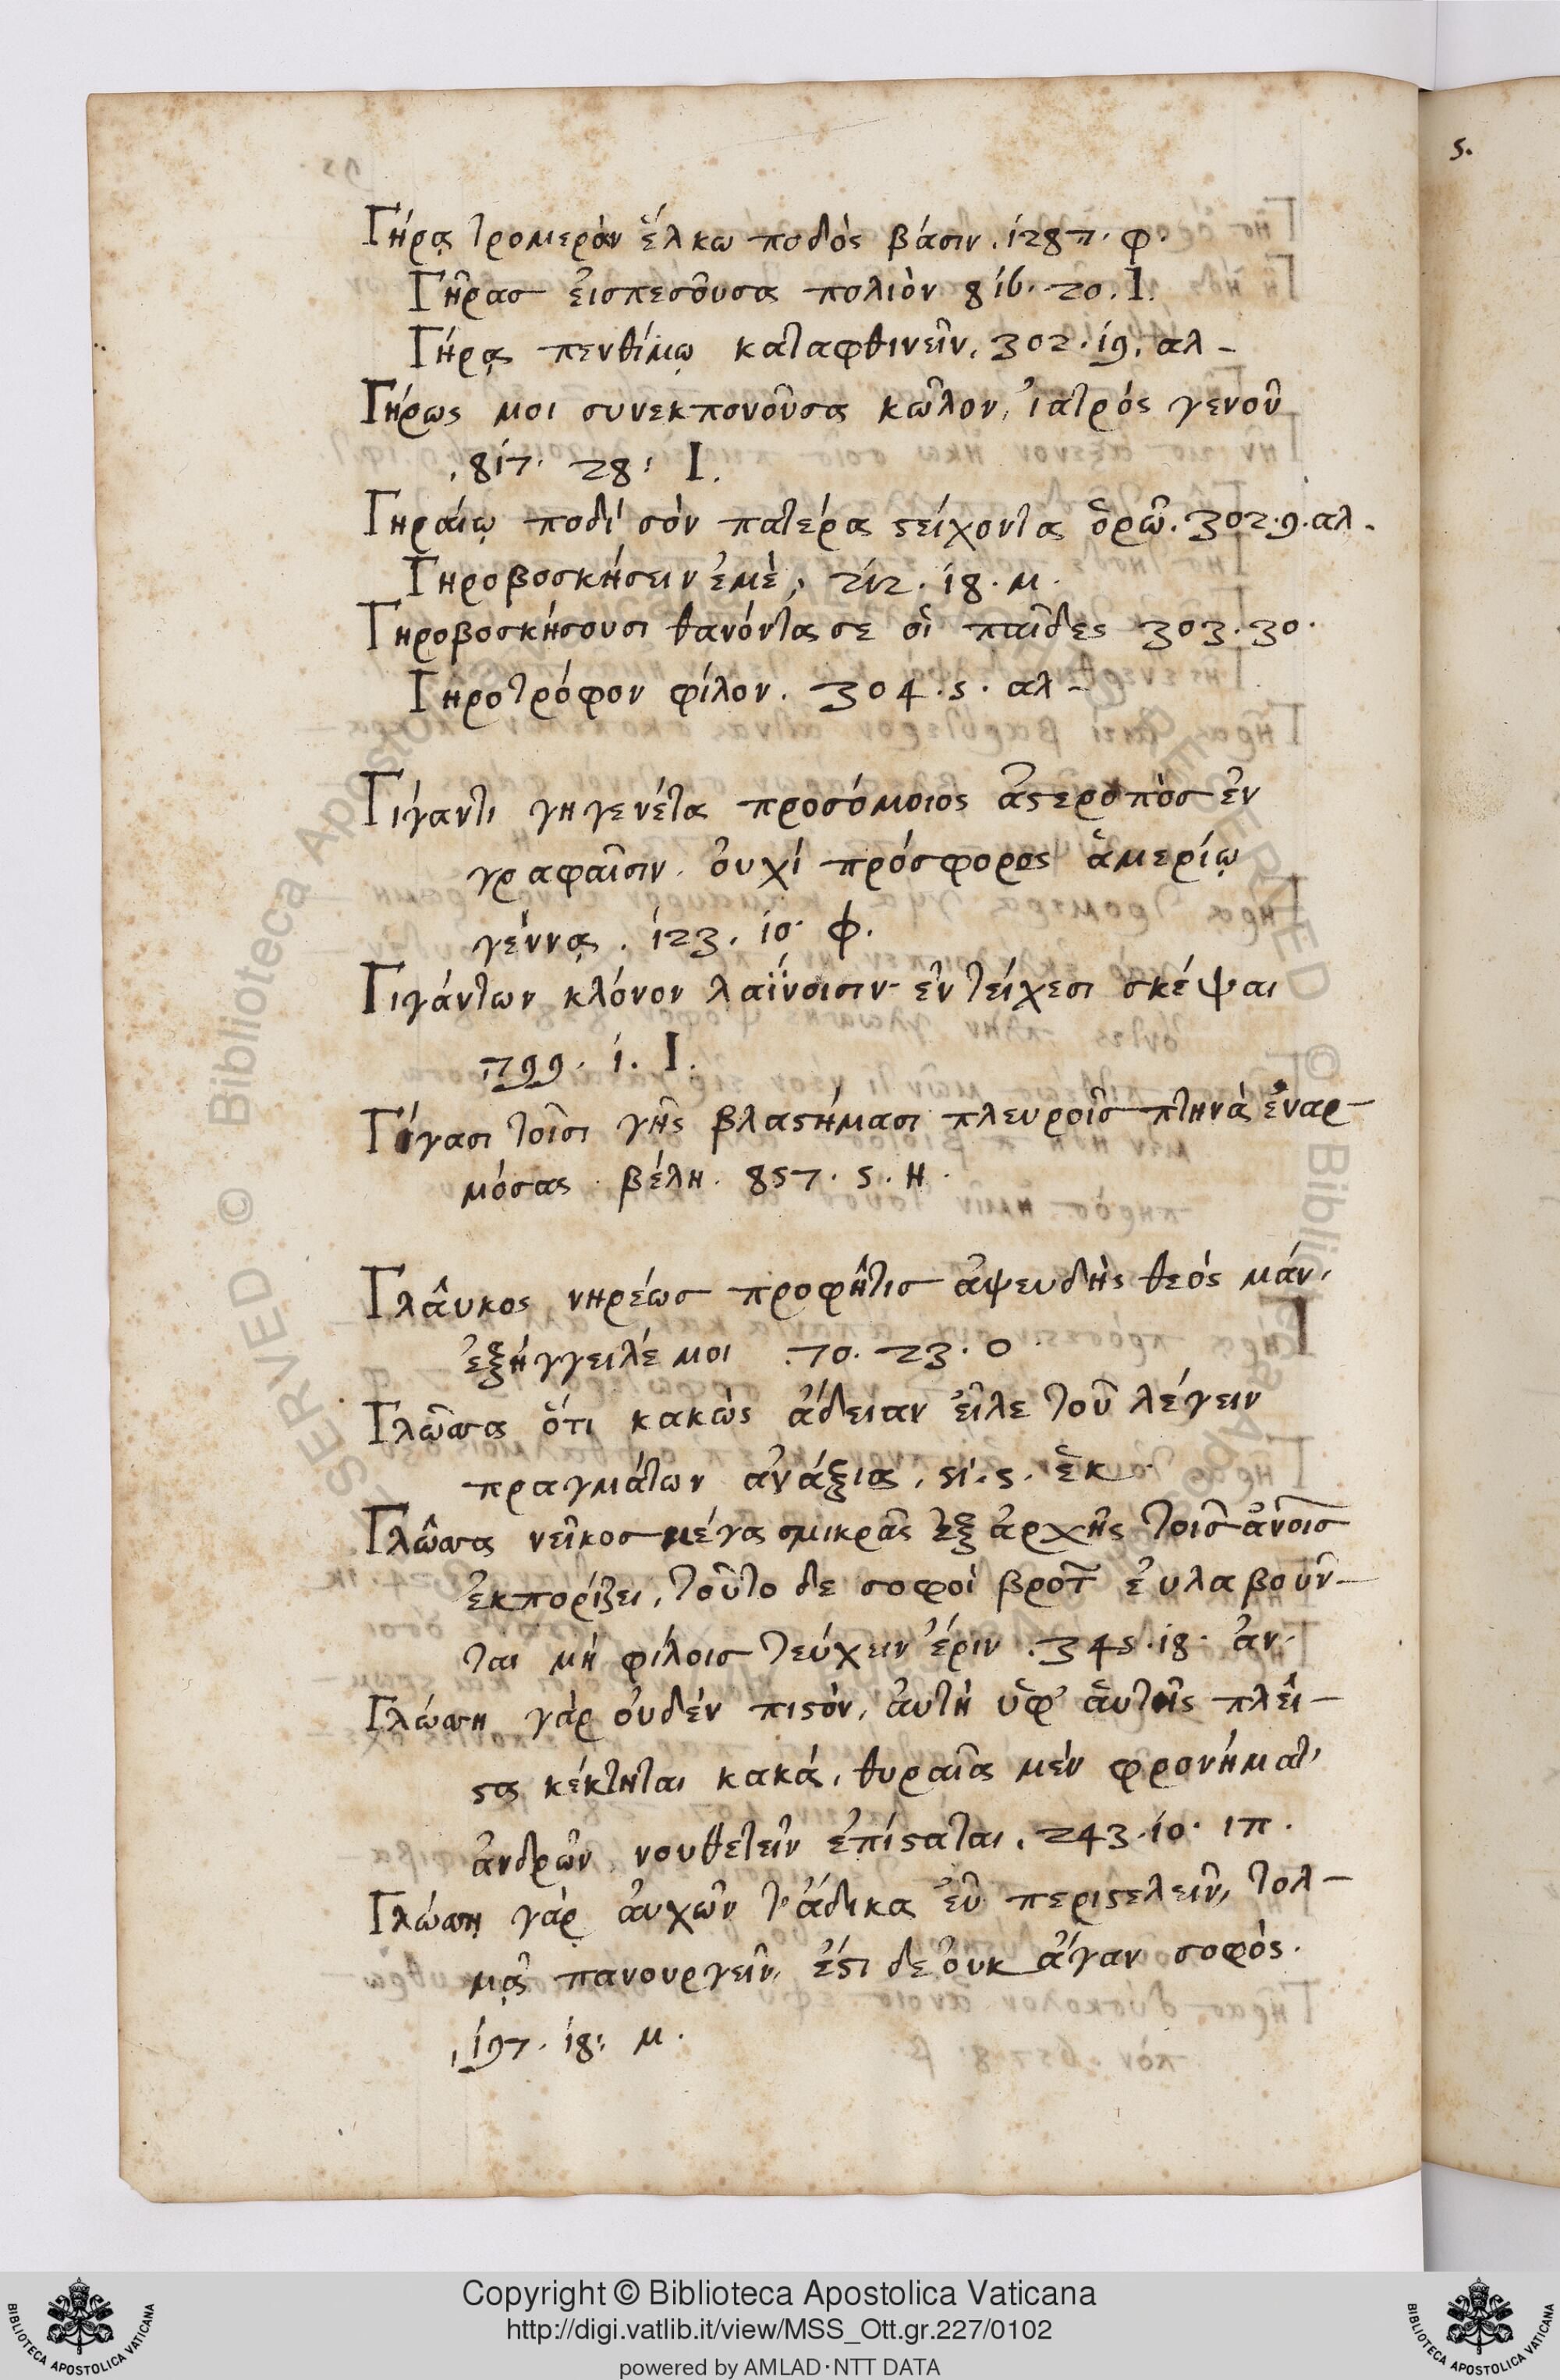 Γήρᾳ τρομερὰν ἕλκω ποδὸς βάσιν. 128π. φ.
Γῆρας εἰσπεσοῦσα πολιὸν 816. 20. Ι.
Γήρᾳ πενθίμῳ καταφθινεῖν. 302. 19. αλ-
Γήρως μοι συνεκπονοῦσα κῶλον, ἰατρός γενοῦ
, 817. 28. Ι.
Γηραίῳ ποδί σὸν πατέρα ςείχοντα ὁρῶ. 302. 9. αλ.
Γηροβοσκήσειν ἐμὲ, 212. 18. μ.
Γηροβοσκήσουσι θανόντα σε οἱ παῖδες 303. 30.
Γηροτρόφον φίλον. 304. 5. αλ-
Γίγαντι γηγενέτα προσόμοιος ἀςεροπὸς ἐν
γραφαῖσιν. ὀυχί πρόσφορος ἁμερίῳ
γέννᾳ. 123. 10. φ.
Γιγάντων κλόνον λαϊνοισιν ἐν τείχεσι σκέψαι
,799. 1. Ι.
Γίγασι τοῖσι γῆς βλαςήμασι πλευροῖς πτηνὰ ἐναρ-
μόσας βέλη. 857. 5. Η.
Γλᾶυκος νηρέως προφῆτις ἀψευδὴς θεός μάν,
ἐξήγγειλέ μοι .70. 23. Ο.
Γλῶσσα ὅτι κακῶς ἄδειαν εἷλε τοῦ λέγειν
πραγμάτων ἀνάξια, 51. 5. ἑκ.
Γλῶσσα νεῖκος μέγα σμικρᾶς ἐξ ἀρχῆς τοῖς ἀνοις
ἐκπορίζει, τοῦτο δε σοφοὶ βροτ ἐυλαβοῦν-
ται μὴ φίλοις τεύχειν ἔριν .345. 18. ἀν.
Γλώσση γὰρ ὀυδέν πιςόν, ἀυτὴ ὑφ' ἁυτῆς πλεῖ-
ςα κέκτηται κακά, θυραῖα μὲν φρονήματ'
ἀνδρῶν νουθετεῖν ἐπίςαται, 243. 10. ιπ.
Γλώσσῃ γὰρ ἀυχῶν τ' ἄδικα ἐῦ περιςελεῖν, τολ-
μᾷ πανουργεῖν, ἐςι δε ὀυκ ἄγαν σοφὸς.
, 197. 18. μ.
5.
Copyright © Biblioteca Apostolica Vaticana
http://digi.vatlib.it/view/MSS_Ott.gr.227/0102
powered by AMLAD·NTT DATA
BIBLIOTECA APOSTOLICA VATICANA
BIBLIOTECA APOSTOLICA VATICANA